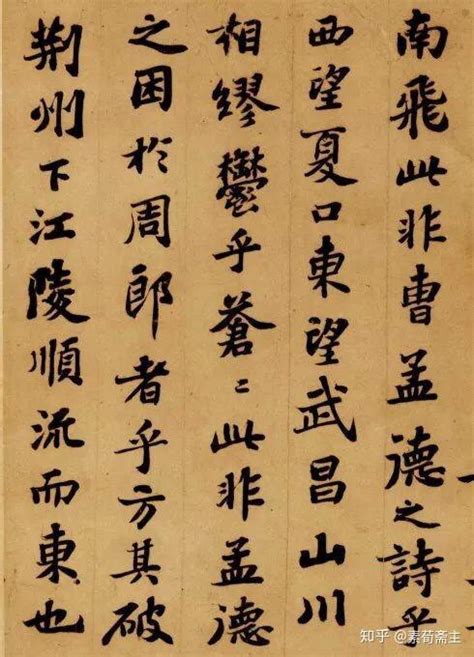 南飛此非曹孟德之詩乎
西望夏口東望武昌山川
相繆鬱乎蒼〻此非孟德
之困於周郎者乎方其破
荆州下江陵順流而東也
知乎 @素荀斋主